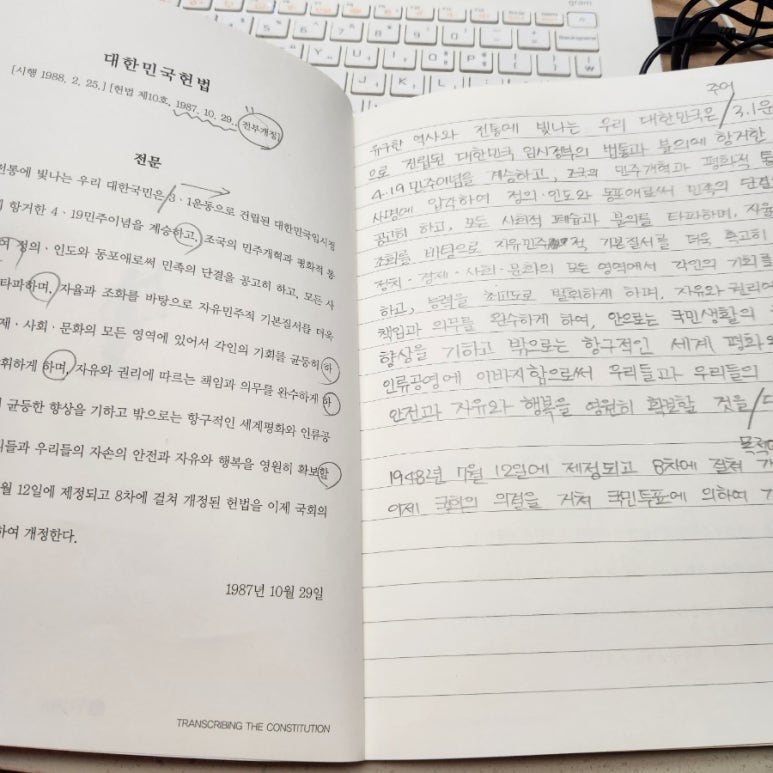 대한민국헌법
[시행 1988. 2. 25.] [헌법 제10호, 1987. 10. 29., 전부개정]
전문
전통에 빛나는 우리 대한국민은 3·1운동으로 건립된 대한민국임시정
항거한 4·19민주이념을 계승하고, 조국의 민주개혁과 평화적 통
정의·인도와 동포애로써 민족의 단결을 공고히 하고, 모든 사
타파하며, 자율과 조화를 바탕으로 자유민주적 기본질서를 더욱
제·사회·문화의 모든 영역에 있어서 각인의 기회를 균등히 하
휘하게 하며, 자유와 권리에 따르는 책임과 의무를 완수하게 하
균등한 향상을 기하고 밖으로는 항구적인 세계평화와 인류공
리들과 우리들의 자손의 안전과 자유와 행복을 영원히 확보할
월 12일에 제정되고 8차에 걸쳐 개정된 헌법을 이제 국회의
하여 개정한다.
1987년 10월 29일
TRANSCRIBING THE CONSTITUTION
주어
유구한 역사와 전통에 빛나는 우리 대한민국은 / 3.1운
으로 건립된 대한민국 임시정부의 법통과 불의에 항거한
4·19 민주이념을 계승하고, 조국의 민주개혁과 평화적 통
사명에 입각하여 정의·인도와 동포애로써 민족의 단결
공고히 하고, 모든 사회적 폐습과 불의를 타파하며, 자율
조화를 바탕으로 자유민주적 기본질서를 더욱 확고히
정치·경제·사회·문화의 모든 영역에서 각인의 기회를
하고, 능력을 최고도로 발휘하게 하며, 자유와 권리에
책임과 의무를 완수하게 하여, 안으로는 국민생활의
향상을 기하고 밖으로는 항구적인 세계 평화와
인류공영에 이바지함으로써 우리들과 우리들의
안전과 자유와 행복을 영원히 확보할 것을 / 다
목적어
1948년 7월 12일에 제정되고 8차에 걸쳐 개
이제 국회의 의결을 거쳐 국민투표에 의하여 개
gram
Backspace